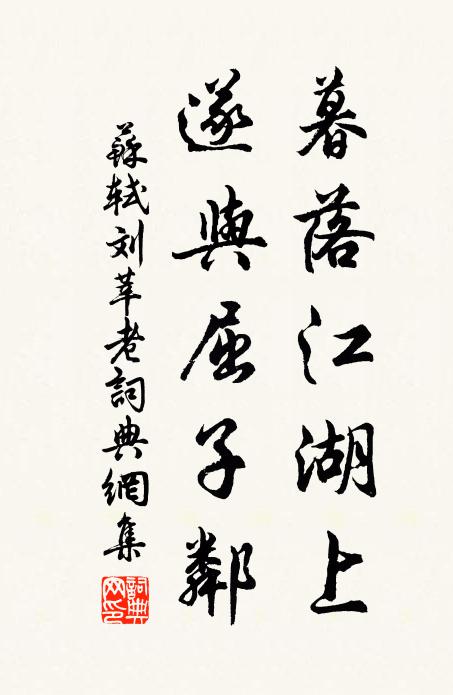 暮落江湖上
遂與屈子鄰
蘇軾刘莘老詞典網集
詞典网印